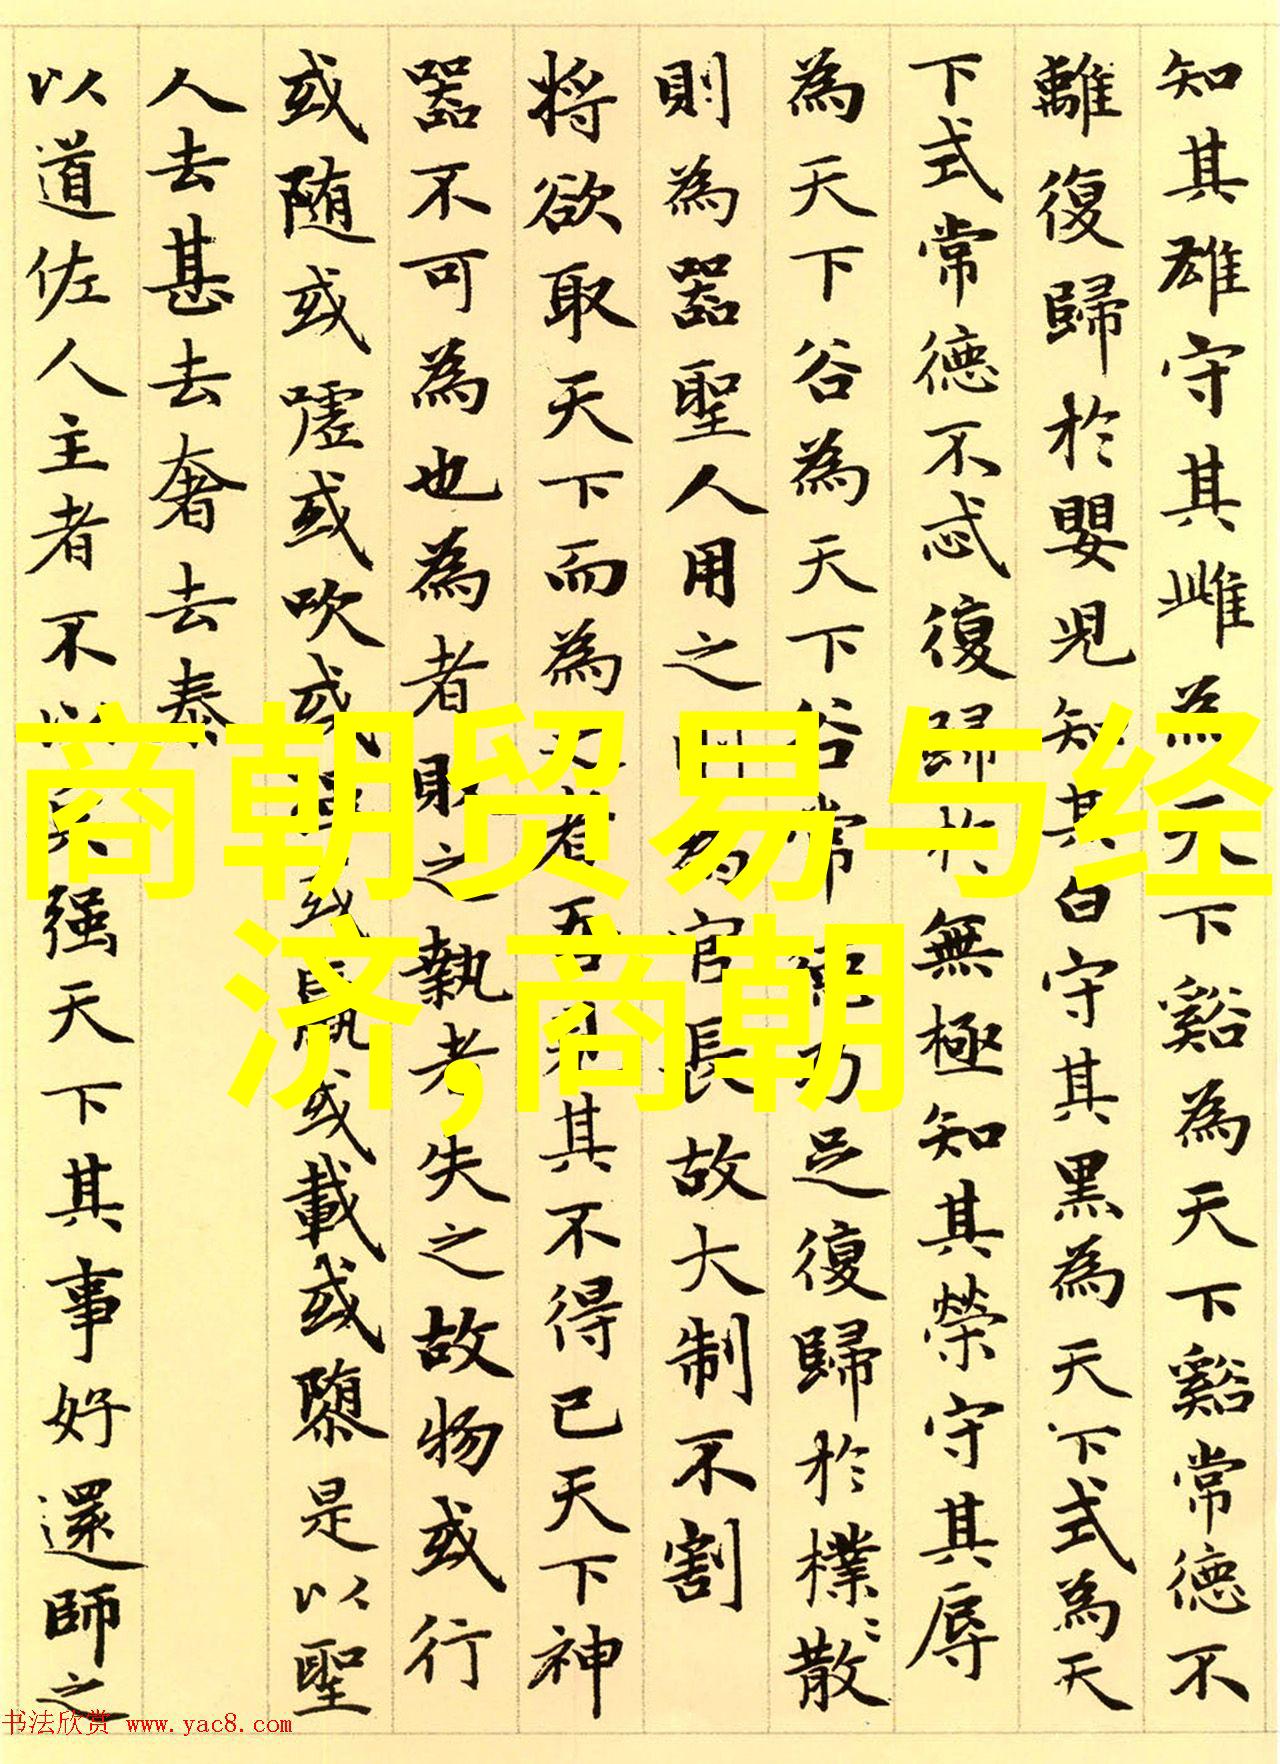 知其雄守其雌為天下谿為天下谿常德不
離復歸於嬰兒知其白守其黑為天下式為天
下式常德不忒復歸於無極知其榮守其辱
為天下谷為天下谷常德乃足復歸於樸〻散
則為器聖人用之則為官長故大制不割
将欲取天下而為之者吾見其不得已天下神
器不可為也為者敗之執者失之故物或行
或随或噓或吹或强或羸或載或隳是以聖
人去甚去奢去泰
以道佐人主者不以兵强天下其事好還師之
商朝贸易与经
济,商朝
书法欣赏 www.yac8.com